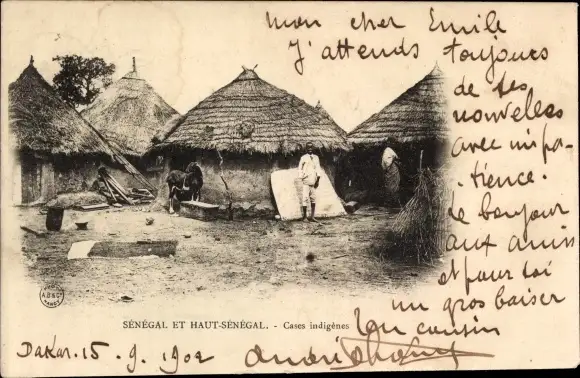 mon cher Emile
J'attends toujours
de tes
nouvelles
avec impa-
tience.
le bonjour
aux amis
et pour toi
un gros baiser
Ton cousin
André
SÉNÉGAL ET HAUT-SÉNÉGAL. - Cases indigènes
Dakar. 15. 9. 1902